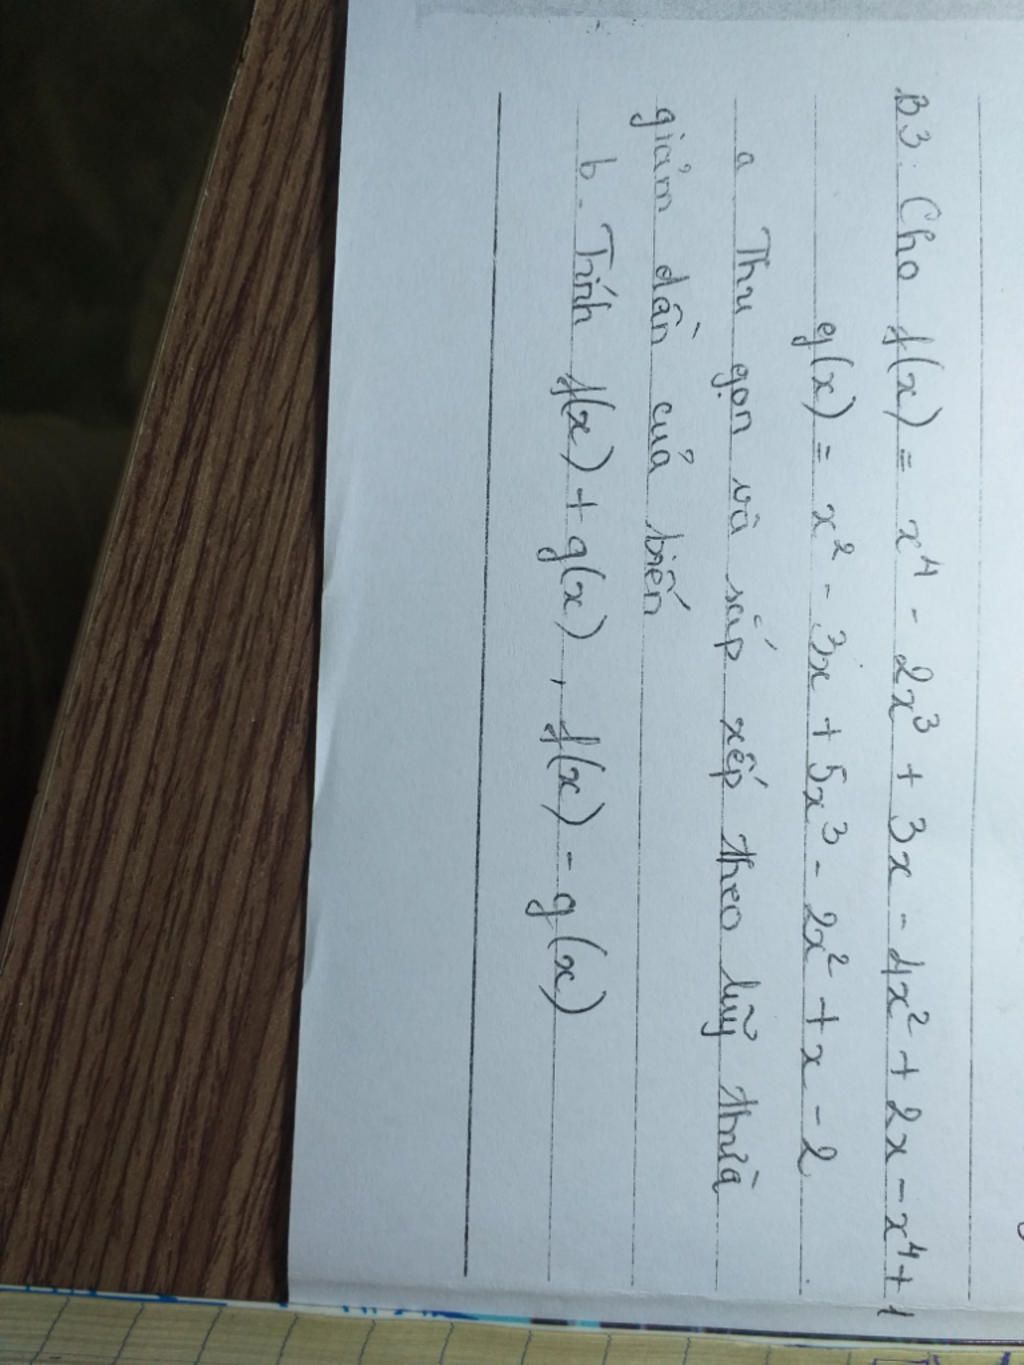 B3: Cho f(x) = x⁴ - 2x³ + 3x - 4x² + 2x - x⁴ + 1
g(x) = x² - 3x + 5x³ - 2x² + x - 2
a Thu gọn và sắp xếp theo luỹ thừa
giảm dần của biến
b. Tính f(x) + g(x), f(x) - g(x)